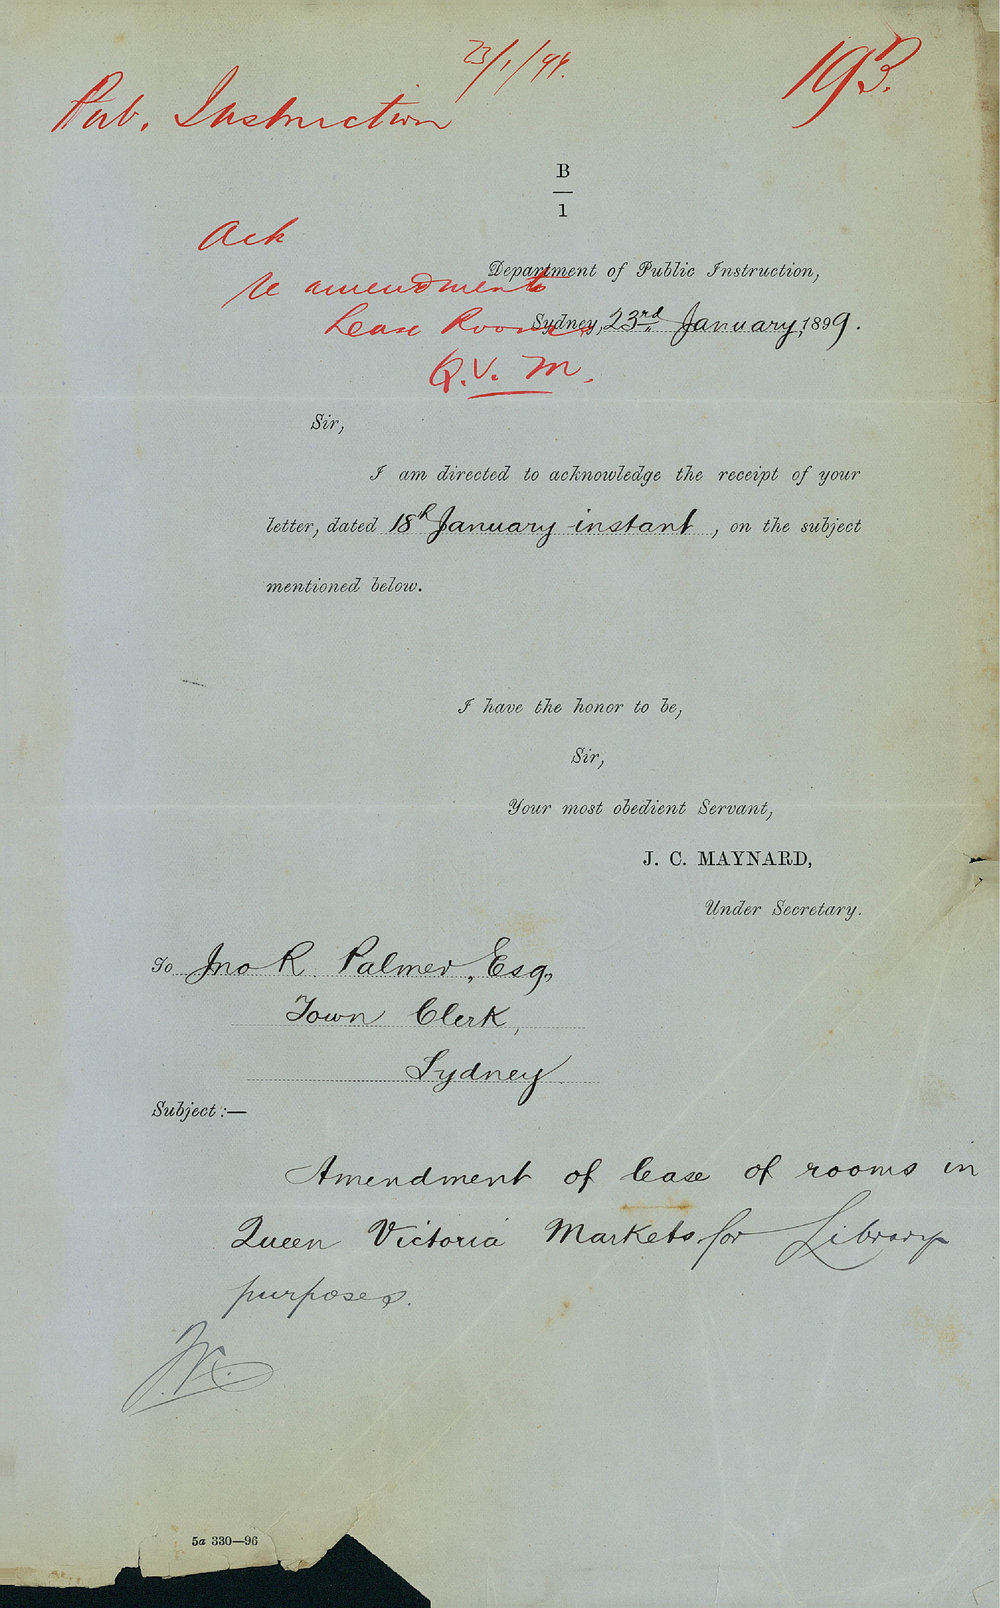 23/1/99.
193.
Pub. Instruction
B
1
Ack
re amendment
Lease Rooms
Q.V. M.
Department of Public Instruction,
Sydney, 23rd January, 1899.
Sir,
I am directed to acknowledge the receipt of your
letter, dated 18th January instant, on the subject
mentioned below.
I have the honor to be,
Sir,
Your most obedient Servant,
J. C. MAYNARD,
Under Secretary.
To Jno R. Palmer, Esq,
Town Clerk,
Sydney.
Subject:—
Amendment of lease of rooms in
Queen Victoria Markets for Library
purposes.
5a 330—96